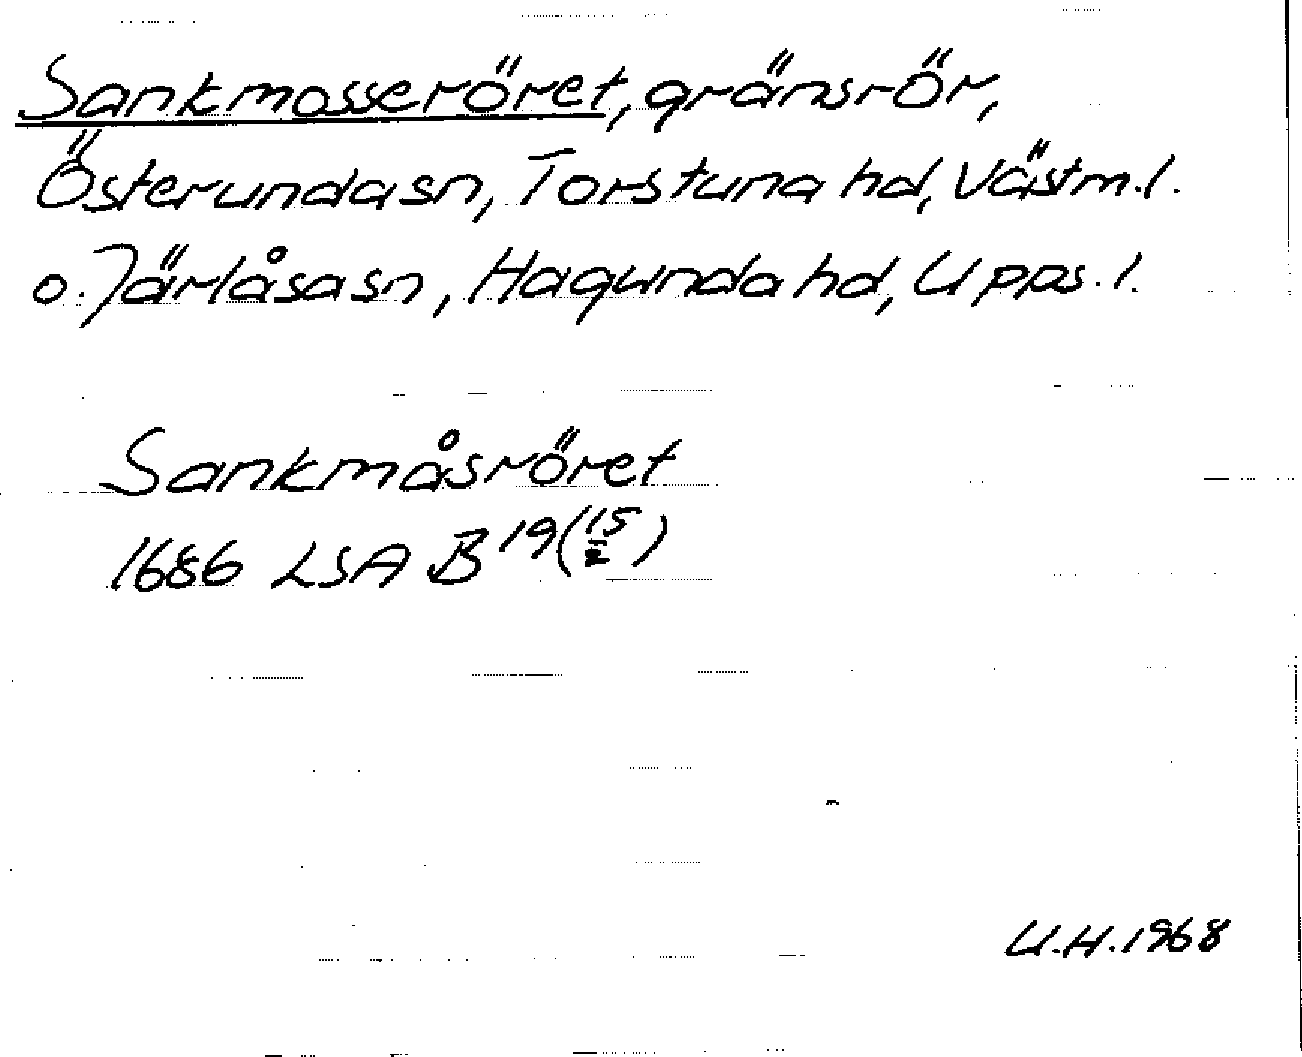 Sankmosseröret, gränsrör,
Österunda sn, Torstuna hd, Västm. l.
o. Järlåsa sn, Hagunda hd, Upps. l.
Sankmåsröret
1686 LSA B 19 (15/2)
U.H. 1968